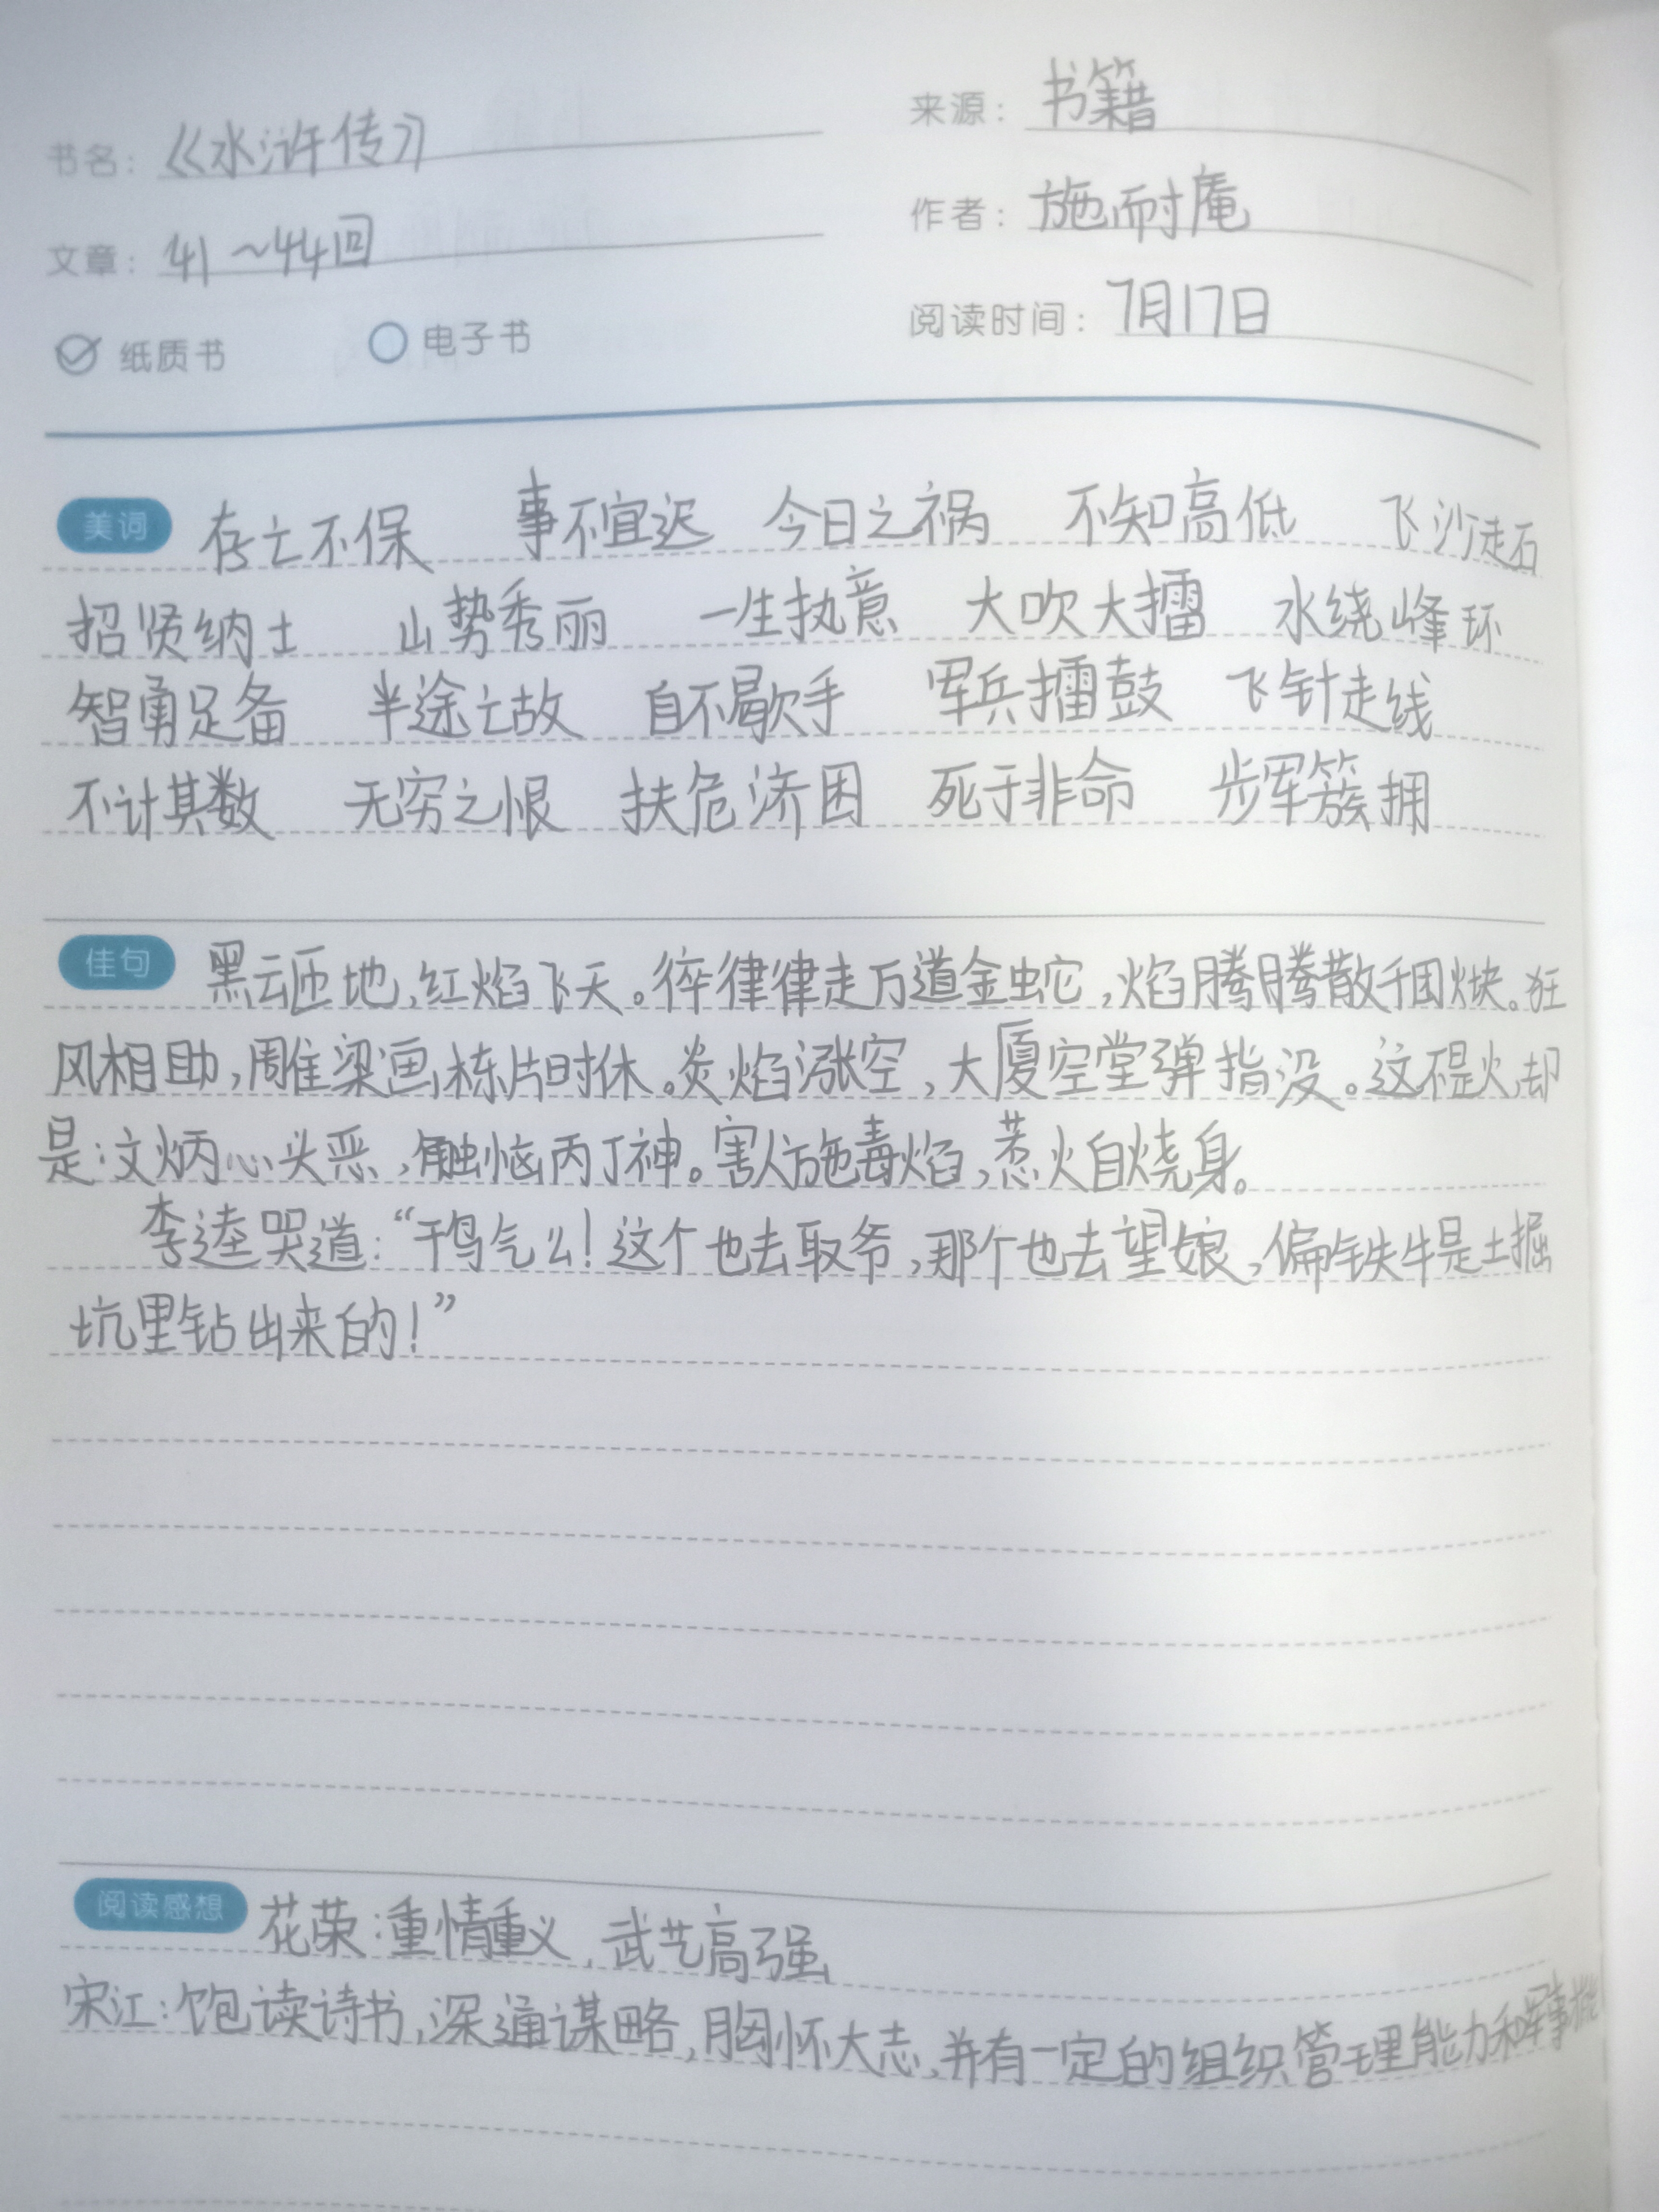 书名：《水浒传》 来源：书籍
文章：41～44回 作者：施耐庵
纸质书 电子书 阅读时间：7月17日
美词 存亡不保 事不宜迟 今日之祸 不知高低 飞沙走石
招贤纳士 山势秀丽 一生执意 大吹大擂 水绕峰环
智勇足备 半途亡故 自不歇手 军兵擂鼓 飞针走线
不计其数 无穷之恨 扶危济困 死于非命 步军簇拥
佳句 黑云匝地，红焰飞天。猝律律走万道金蛇，焰腾腾散千团火块。狂
风相助，雕梁画栋片时休。炎焰涨空，大厦空堂弹指没。这不是火，却
是：文炳心头恶，触恼丙丁神。害人施毒焰，惹火自烧身。
李逵哭道：“干鸟气么！这个也去取爷，那个也去望娘，偏铁牛是土掘
坑里钻出来的！”
阅读感想 花荣：重情重义，武艺高强
宋江：饱读诗书，深通谋略，胸怀大志，并有一定的组织管理能力和军事